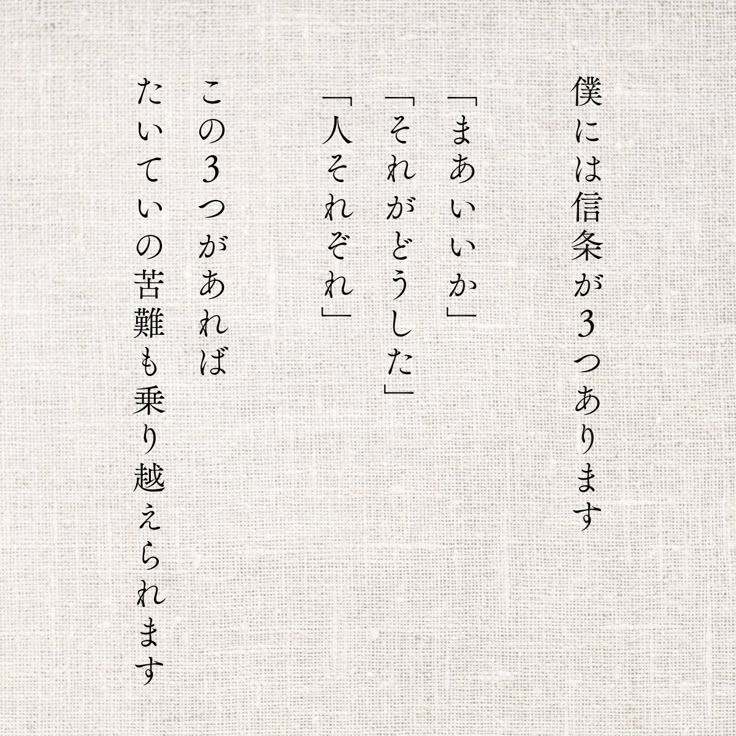 僕には信条が3つあります
「まあいいか」
「それがどうした」
「人それぞれ」
この3つがあれば
たいていの苦難も乗り越えられます